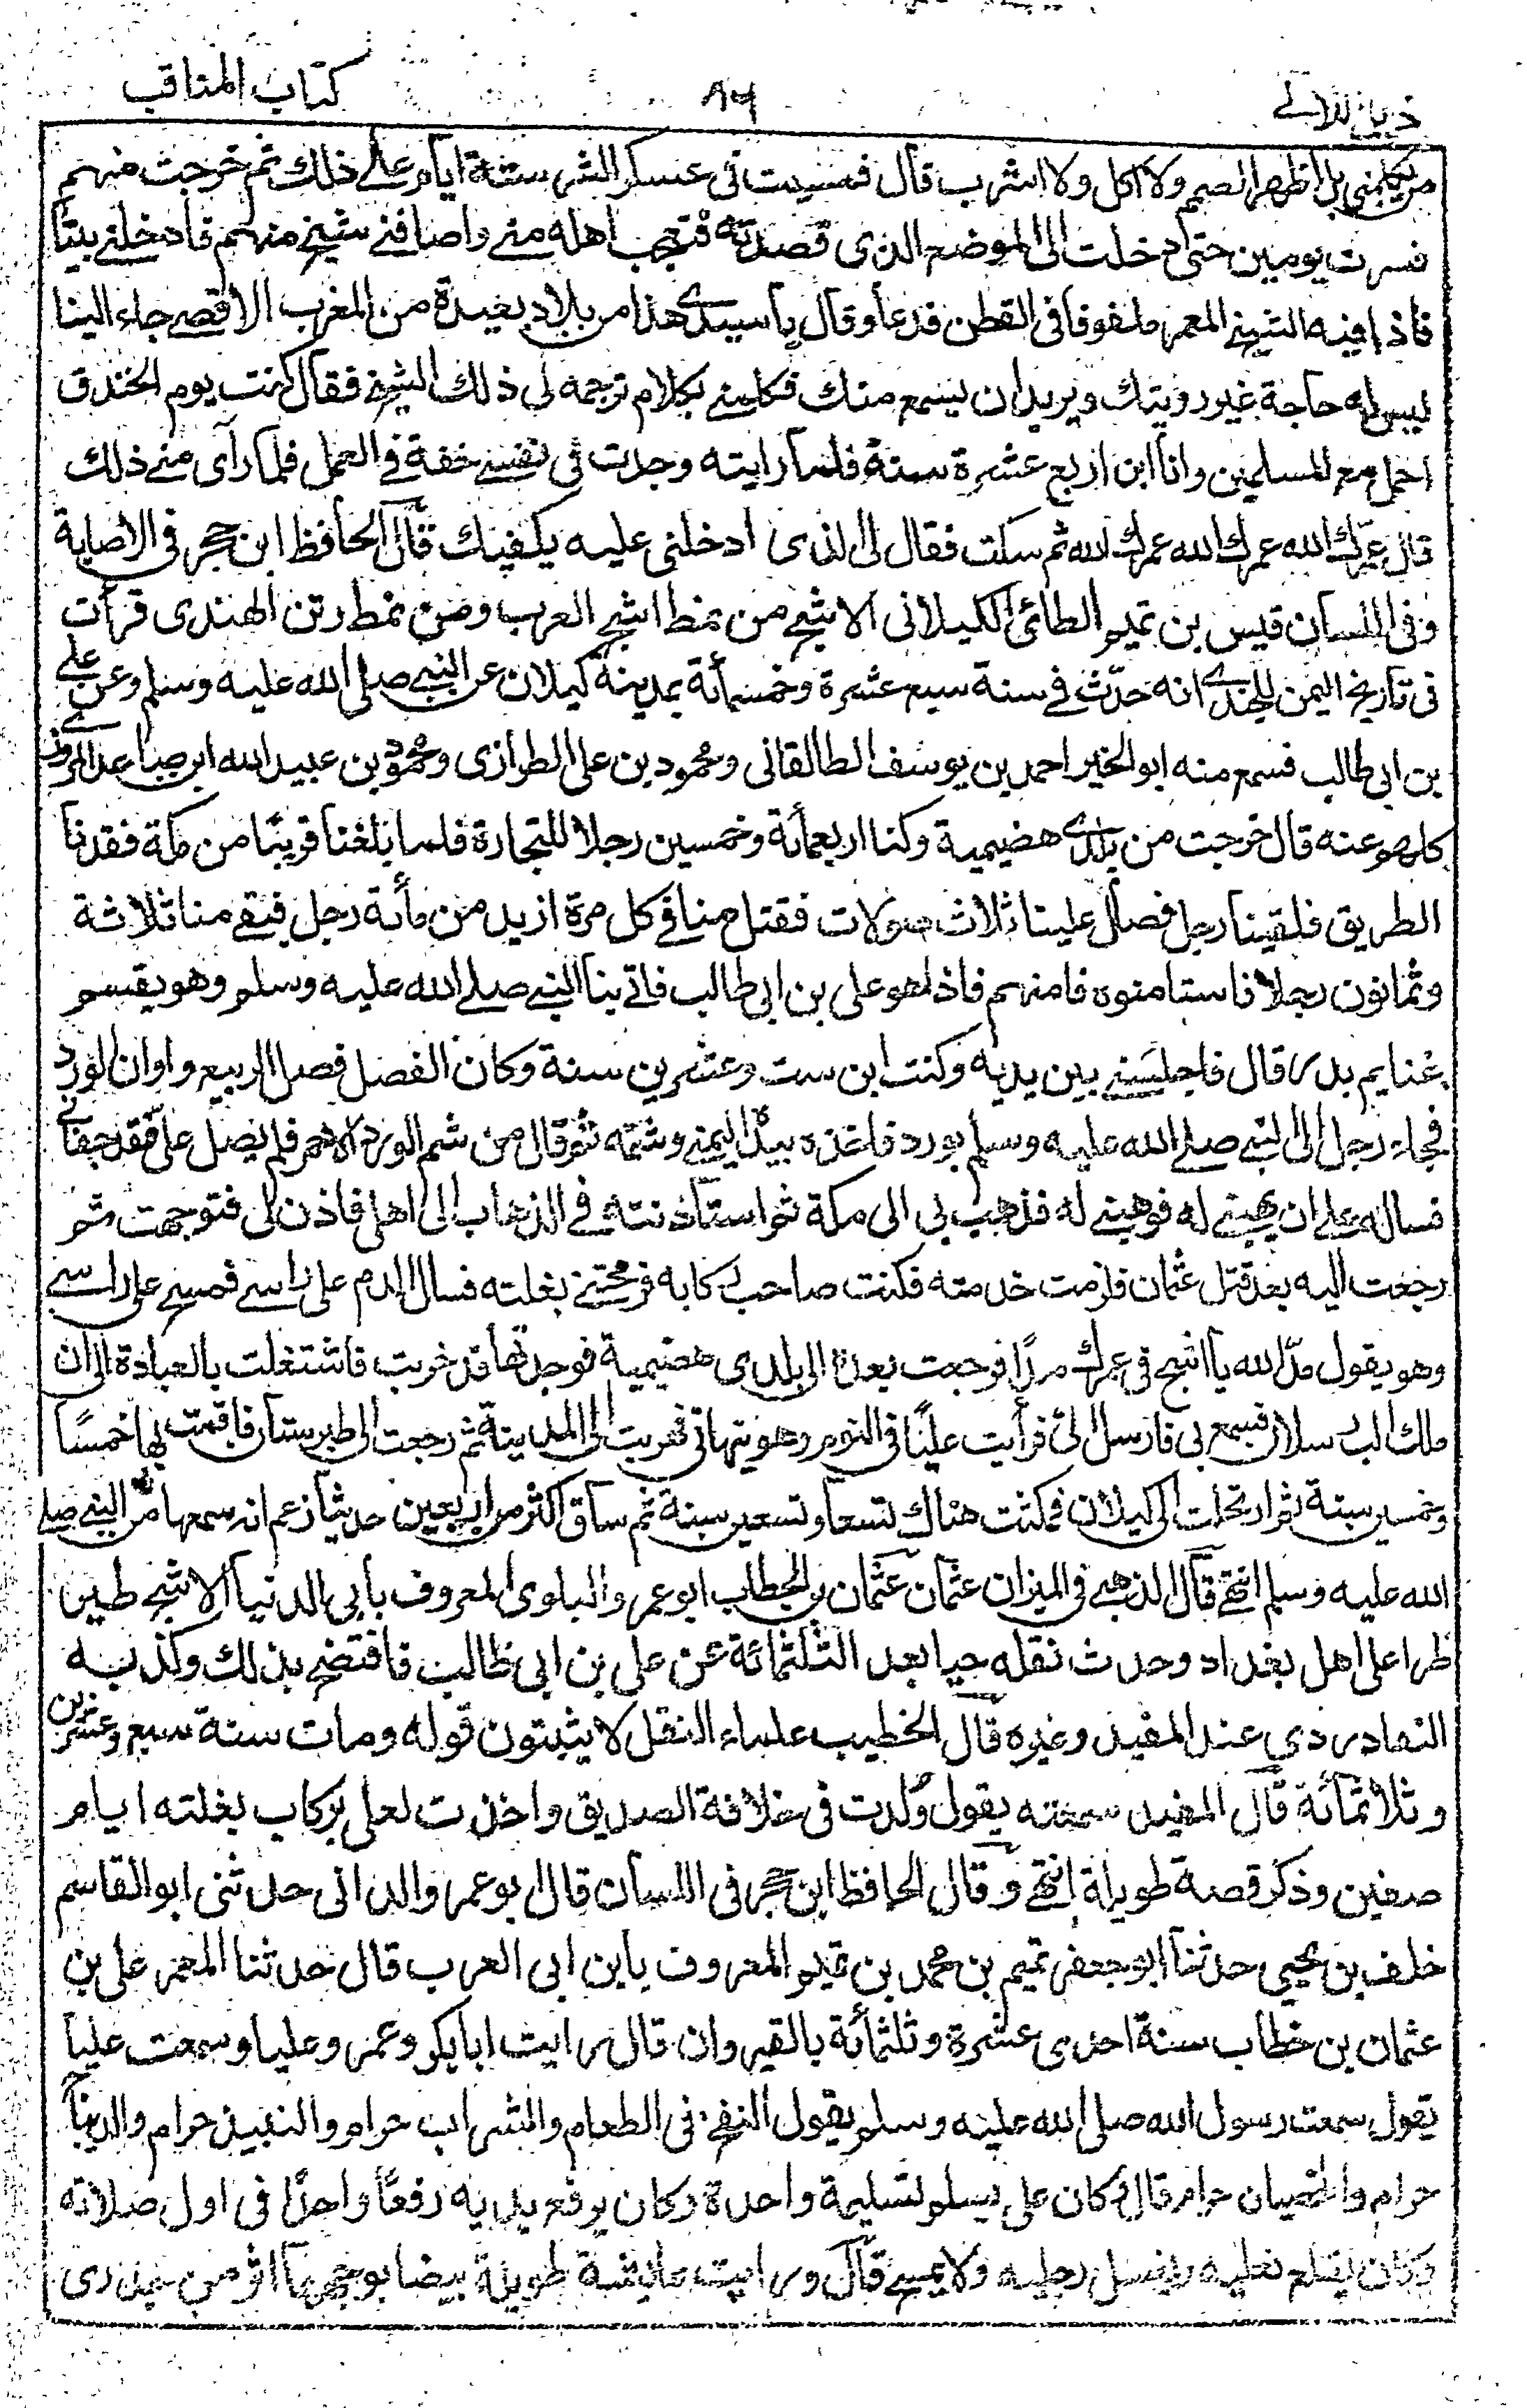 ذيل اللآلي ٨٦ كتاب المناقب
من يكلمني بل اظهر الصمم ولا اكل ولا اشرب قال فمسيت في عسكر الشر ستة ايام على ذلك ثم خرجت منهم
فسرت يومين حتى دخلت الى الموضع الذي قصدته فتعجب اهله مني واضافني شيخ منهم فادخلني بيتا
فاذا فيه الشيخ المعمر ملفوفا في القطن فدعا وقال يا سيدي هذا من بلاد بعيدة من المغرب الاقصى جاء الينا
ليس له حاجة غير رويتك ويريد ان يسمع منك فكلمني بكلام ترجمه لي ذلك الشيخ فقال كنت يوم الخندق
احمل مع المسلمين وانا ابن اربع عشرة سنة فلما رايته وجدت في نفسي خفة في العمل فلما رآى مني ذلك
قال عمرك الله عمرك الله عمرك الله ثم سكت فقال لي الذي ادخلني عليه يكفيك قال الحافظ ابن حجر في الاصابة
وفي اللسان قيس بن تميم الطائي الكيلاني الاشج من نمط اشج العرب ومن نمط رتن الهندي قرأت
في تاريخ اليمن للجندي انه حدث في سنة سبع عشرة وخمسمأئة بمدينة كيلان عن النبي صلى الله عليه وسلم وعن علي
بن ابي طالب فسمع منه ابو الخير احمد بن يوسف الطالقاني ومحمود بن علي الطرازي ومحمود بن عبيد الله ابن صاعد المروزي
كلهم عنه قال خرجت من بلدي هضيمية وكنا اربعمأئة وخمسين رجلا للتجارة فلما بلغنا قريبا من مكة فقدنا
الطريق فلقينا رجل فصال علينا ثلاث صولات فقتل منا في كل مرة ازيد من مأئة رجل فبقي منا ثلاثة
وثمانون رجلا فاستامنوه فامنهم فاذا هو علي بن ابي طالب فاتي بنا النبي صلى الله عليه وسلم وهو يقسم
غنايم بدر قال فاجلسني بين يديه وكنت ابن ست وعشرين سنة وكان الفصل فصل الربيع واوان الورد
فجاء رجل الى النبي صلى الله عليه وسلم بورد فاخذه بيده اليمنى وشمه ثم قال من شم الورد الاحمر فلم يصل علي فقد جفاني
فساله علي ان يهبني له فوهبني له فذهب بي الى مكة ثم استأذنته في الذهاب الى اهلي فاذن لي فتوجهت ثم
رجعت اليه بعد قتل عثمان فلزمت خدمته فكنت صاحب ركابه فرمحتني بغلته فسال الدم على راسي فمسح على راسي
وهو يقول مد الله يا اشج في عمرك مدا فرجعت بعده الى بلدي هضيمية فوجدتها قد خربت فاشتغلت بالعبادة الى ان
ملك الب ارسلان فسمع بي فارسل الي فرأيت عليا في النوم وهو ينهاني فهربت الى المدينة ثم رجعت الى طبرستان فاقمت بها خمسا
وخمسين سنة ثم ارتحلت الى كيلان فمكثت هناك تسعا وتسعين سنة ثم ساق اكثر من اربعين حديثا زعم انه سمعها من النبي صلى
الله عليه وسلم انتهى قال الذهبي في الميزان عثمان عثمان بن الخطاب ابو عمرو البلوي المعروف بابي الدنيا الاشج طير
طرا على اهل بغداد وحدث نقله حيا بعد الثلثمائة عن علي بن ابي طالب فافتضح بذلك وكذبه
النقاد روى عند المفيد وغيره قال الخطيب علماء النقل لا يثبتون قوله ومات سنة سبع وعشرين
وثلاثمأئة قال المفيد سمعته يقول ولدت في خلافة الصديق واخذت لعلي بركاب بغلته ايام
صفين وذكر قصة طويلة انتهى وقال الحافظ ابن حجر في اللسان قال ابو عمرو الداني حدثني ابو القاسم
خلف بن يحيى حدثنا ابو جعفر تميم بن محمد بن تميم المعروف بابن ابي العرب قال حدثنا المعمر علي بن
عثمان بن خطاب سنة احدى عشرة وثلثمأئة بالقيروان قال رايت ابا بكر وعمر وعليا وسمعت عليا
يقول سمعت رسول الله صلى الله عليه وسلم يقول النفخ في الطعام والشراب حرام والنبيذ حرام والديباج
حرام والخصيان حرام قال وكان علي يسلم تسليمة واحدة وكان يرفع يديه رفعا واحدا في اول صلاته
وكان يخلع نعليه ويغسل رجليه ولا يمسح قال ورايت عايشة طويلة بيضا بوجهها اثر من جدري